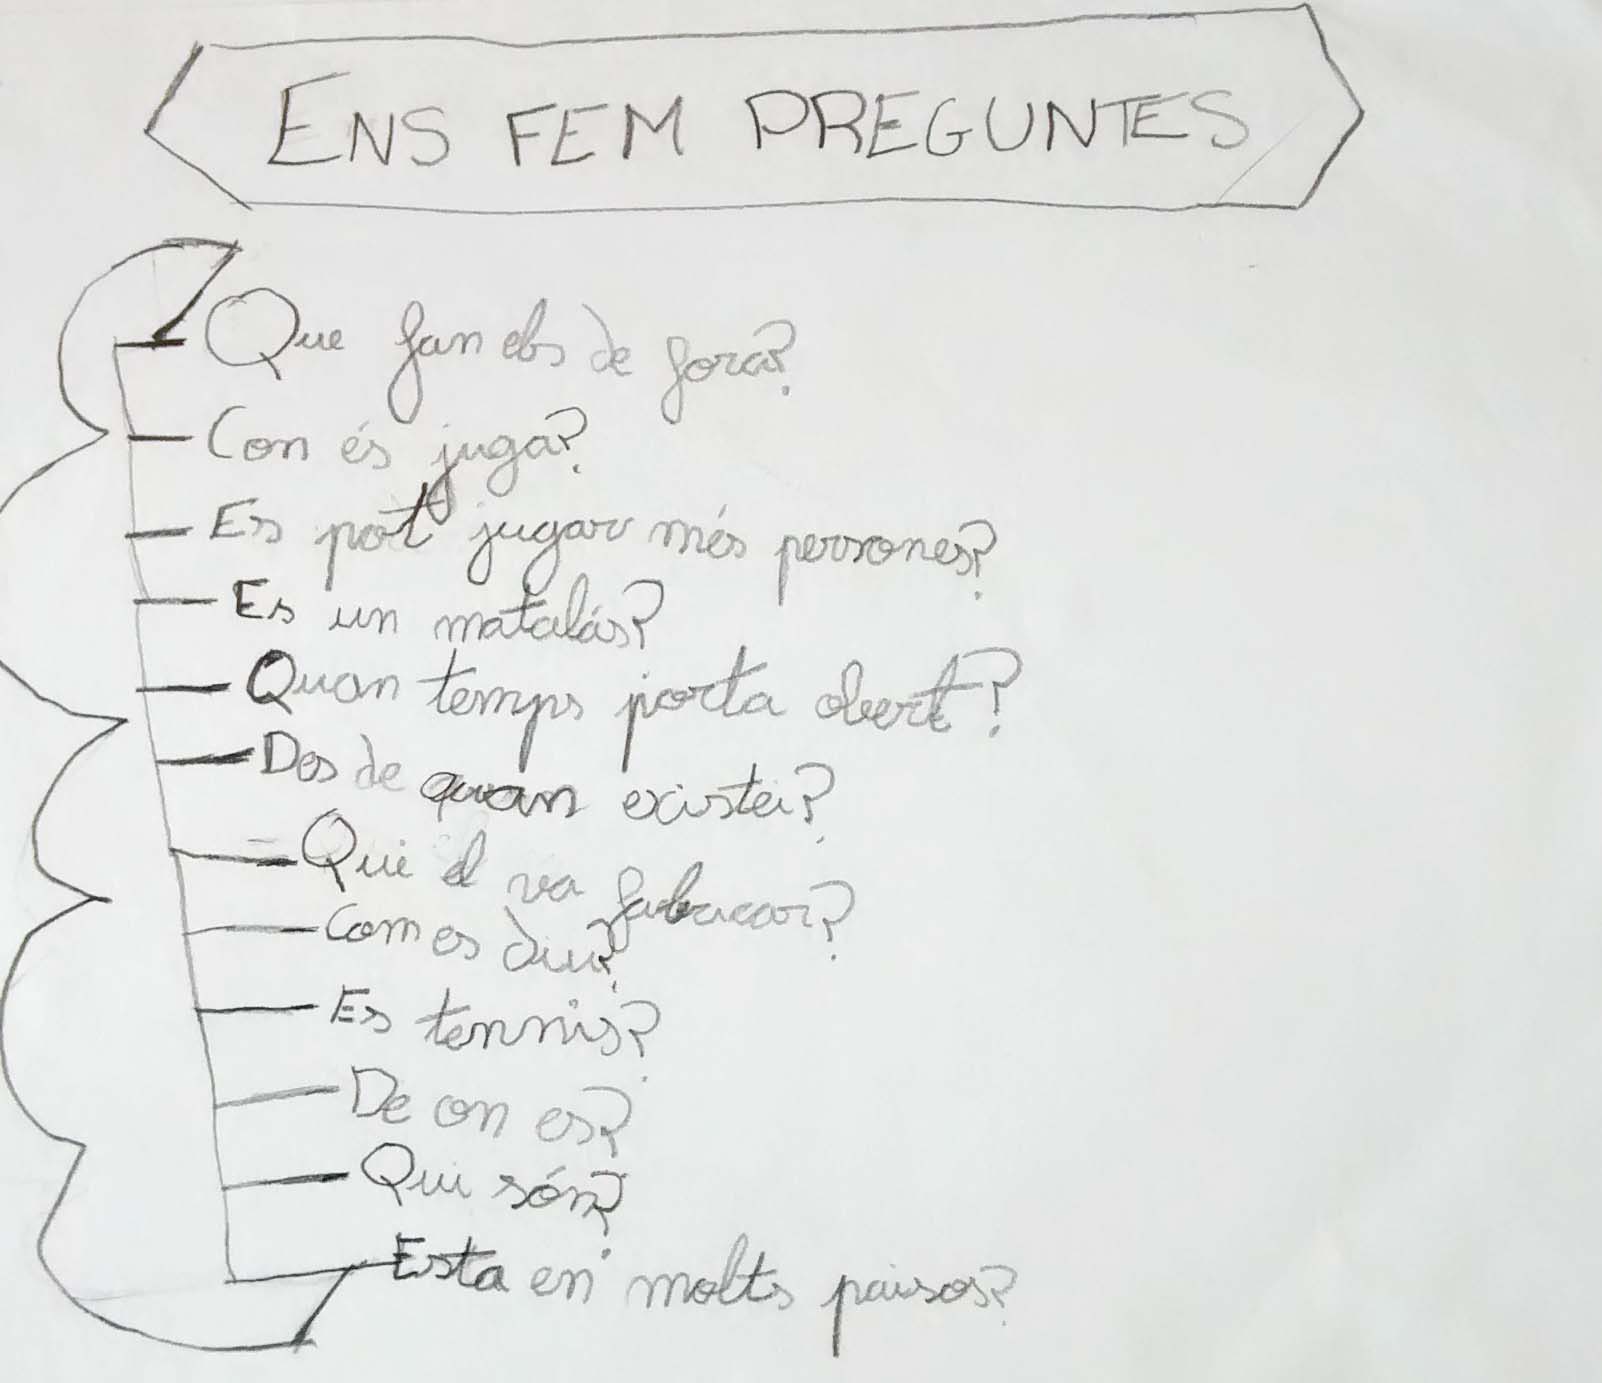 ENS FEM PREGUNTES
Que fan els de fora?
Com és juga?
Es pot jugar més persones?
Es un matalás?
Quan temps porta obert?
Des de quan existei?
Qui el va fabricar?
Com es diu?
Es tennis?
De on es?
Qui són?
Esta en molts paisos?